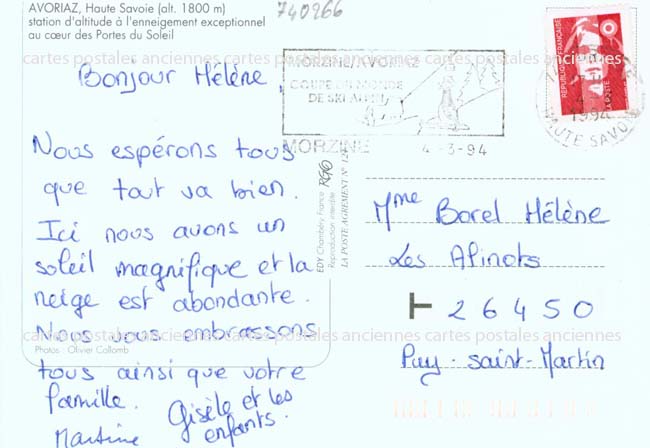 AVORIAZ, Haute Savoie (alt. 1800 m)
station d'altitude à l'enneigement exceptionnel
au cœur des Portes du Soleil
740266
cartes postales anciennes cartes postales anciennes cartes postales anciennes
Bonjour Hélène,
Nous espérons tous
que tout va bien.
Ici nous avons un
soleil magnifique et la
neige est abondante.
Nous vous embrassons
tous ainsi que votre
famille.
Gisèle et les
enfants.
Martine
Photos : Olivier Collomb
cartes postales anciennes cartes postales anciennes cartes postales anciennes
EDY Chambéry France
Reproduction interdite
LA POSTE AGREMENT N°
MORZINE AVORIAZ
COUPE DU MONDE
DE SKI ALPIN
MORZINE
4-3-94
RÉPUBLIQUE FRANÇAISE
LA POSTE
1994
HAUTE SAVOIE
Mme Borel Hélène
Les Alinots
26450
Puy-saint-Martin